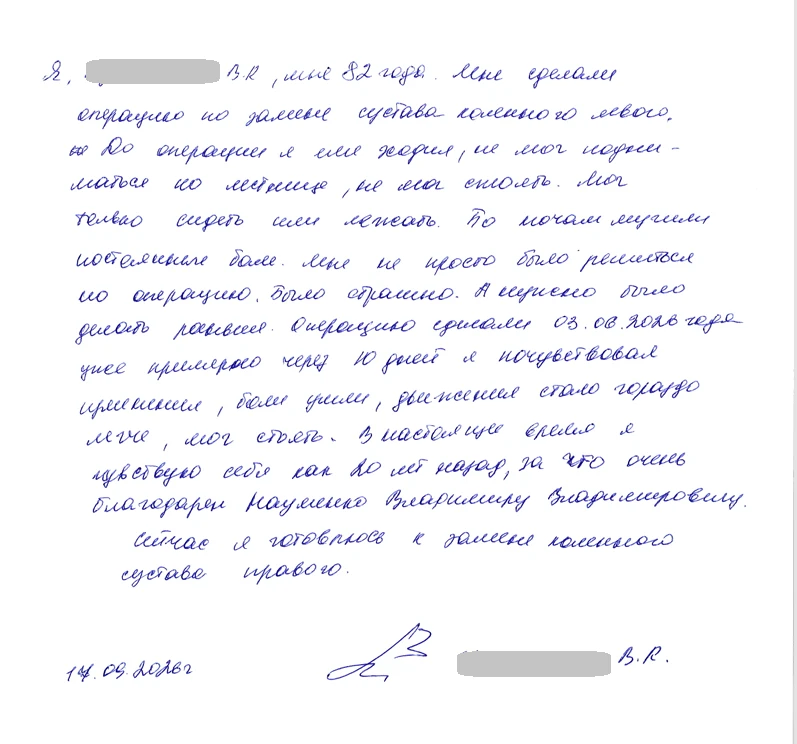 Я, В.К, мне 82 года. Мне сделали
операцию по замене сустава коленного левого.
До операции я еле ходил, не мог подни-
маться по лестнице, не мог стоять. Мог
только сидеть или лежать. По ночам мучили
постоянные боли. Мне не просто было решиться
на операцию. Было страшно. А нужно было
делать раньше. Операцию сделали 03.06.2026 года
уже примерно через 10 дней я почувствовал
изменения, боли ушли, движения стало гораздо
легче, мог стоять. В настоящее время я
чувствую себя как 20 лет назад, за что очень
благодарен Науменко Владимиру Владимировичу.
Сейчас я готовлюсь к замене коленного
сустава правого.
17.09.2026г В.К.